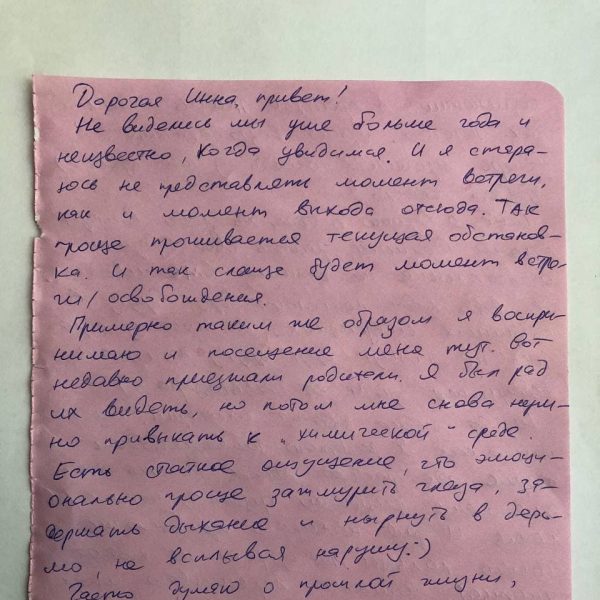 Дорогая Инна, привет!
Не виделись мы уже больше года и
неизвестно, когда увидимся. И я стара-
юсь не представлять момент встречи,
как и момент выхода отсюда. Так
проще проживается текущая обстанов-
ка. И так слаще будет момент встре-
чи/освобождения.
Примерно таким же образом я воспри-
нимаю и посещение меня тут. Вот
недавно приезжали родители. Я был рад
их видеть, но потом мне снова нуж-
но привыкать к "химической" среде.
Есть стойкое ощущение, что эмоци-
онально проще зажмурить глаза, за-
держать дыхание и нырнуть в дерь-
мо, не всплывая наружу:)
Часто думаю о прошлой жизни,